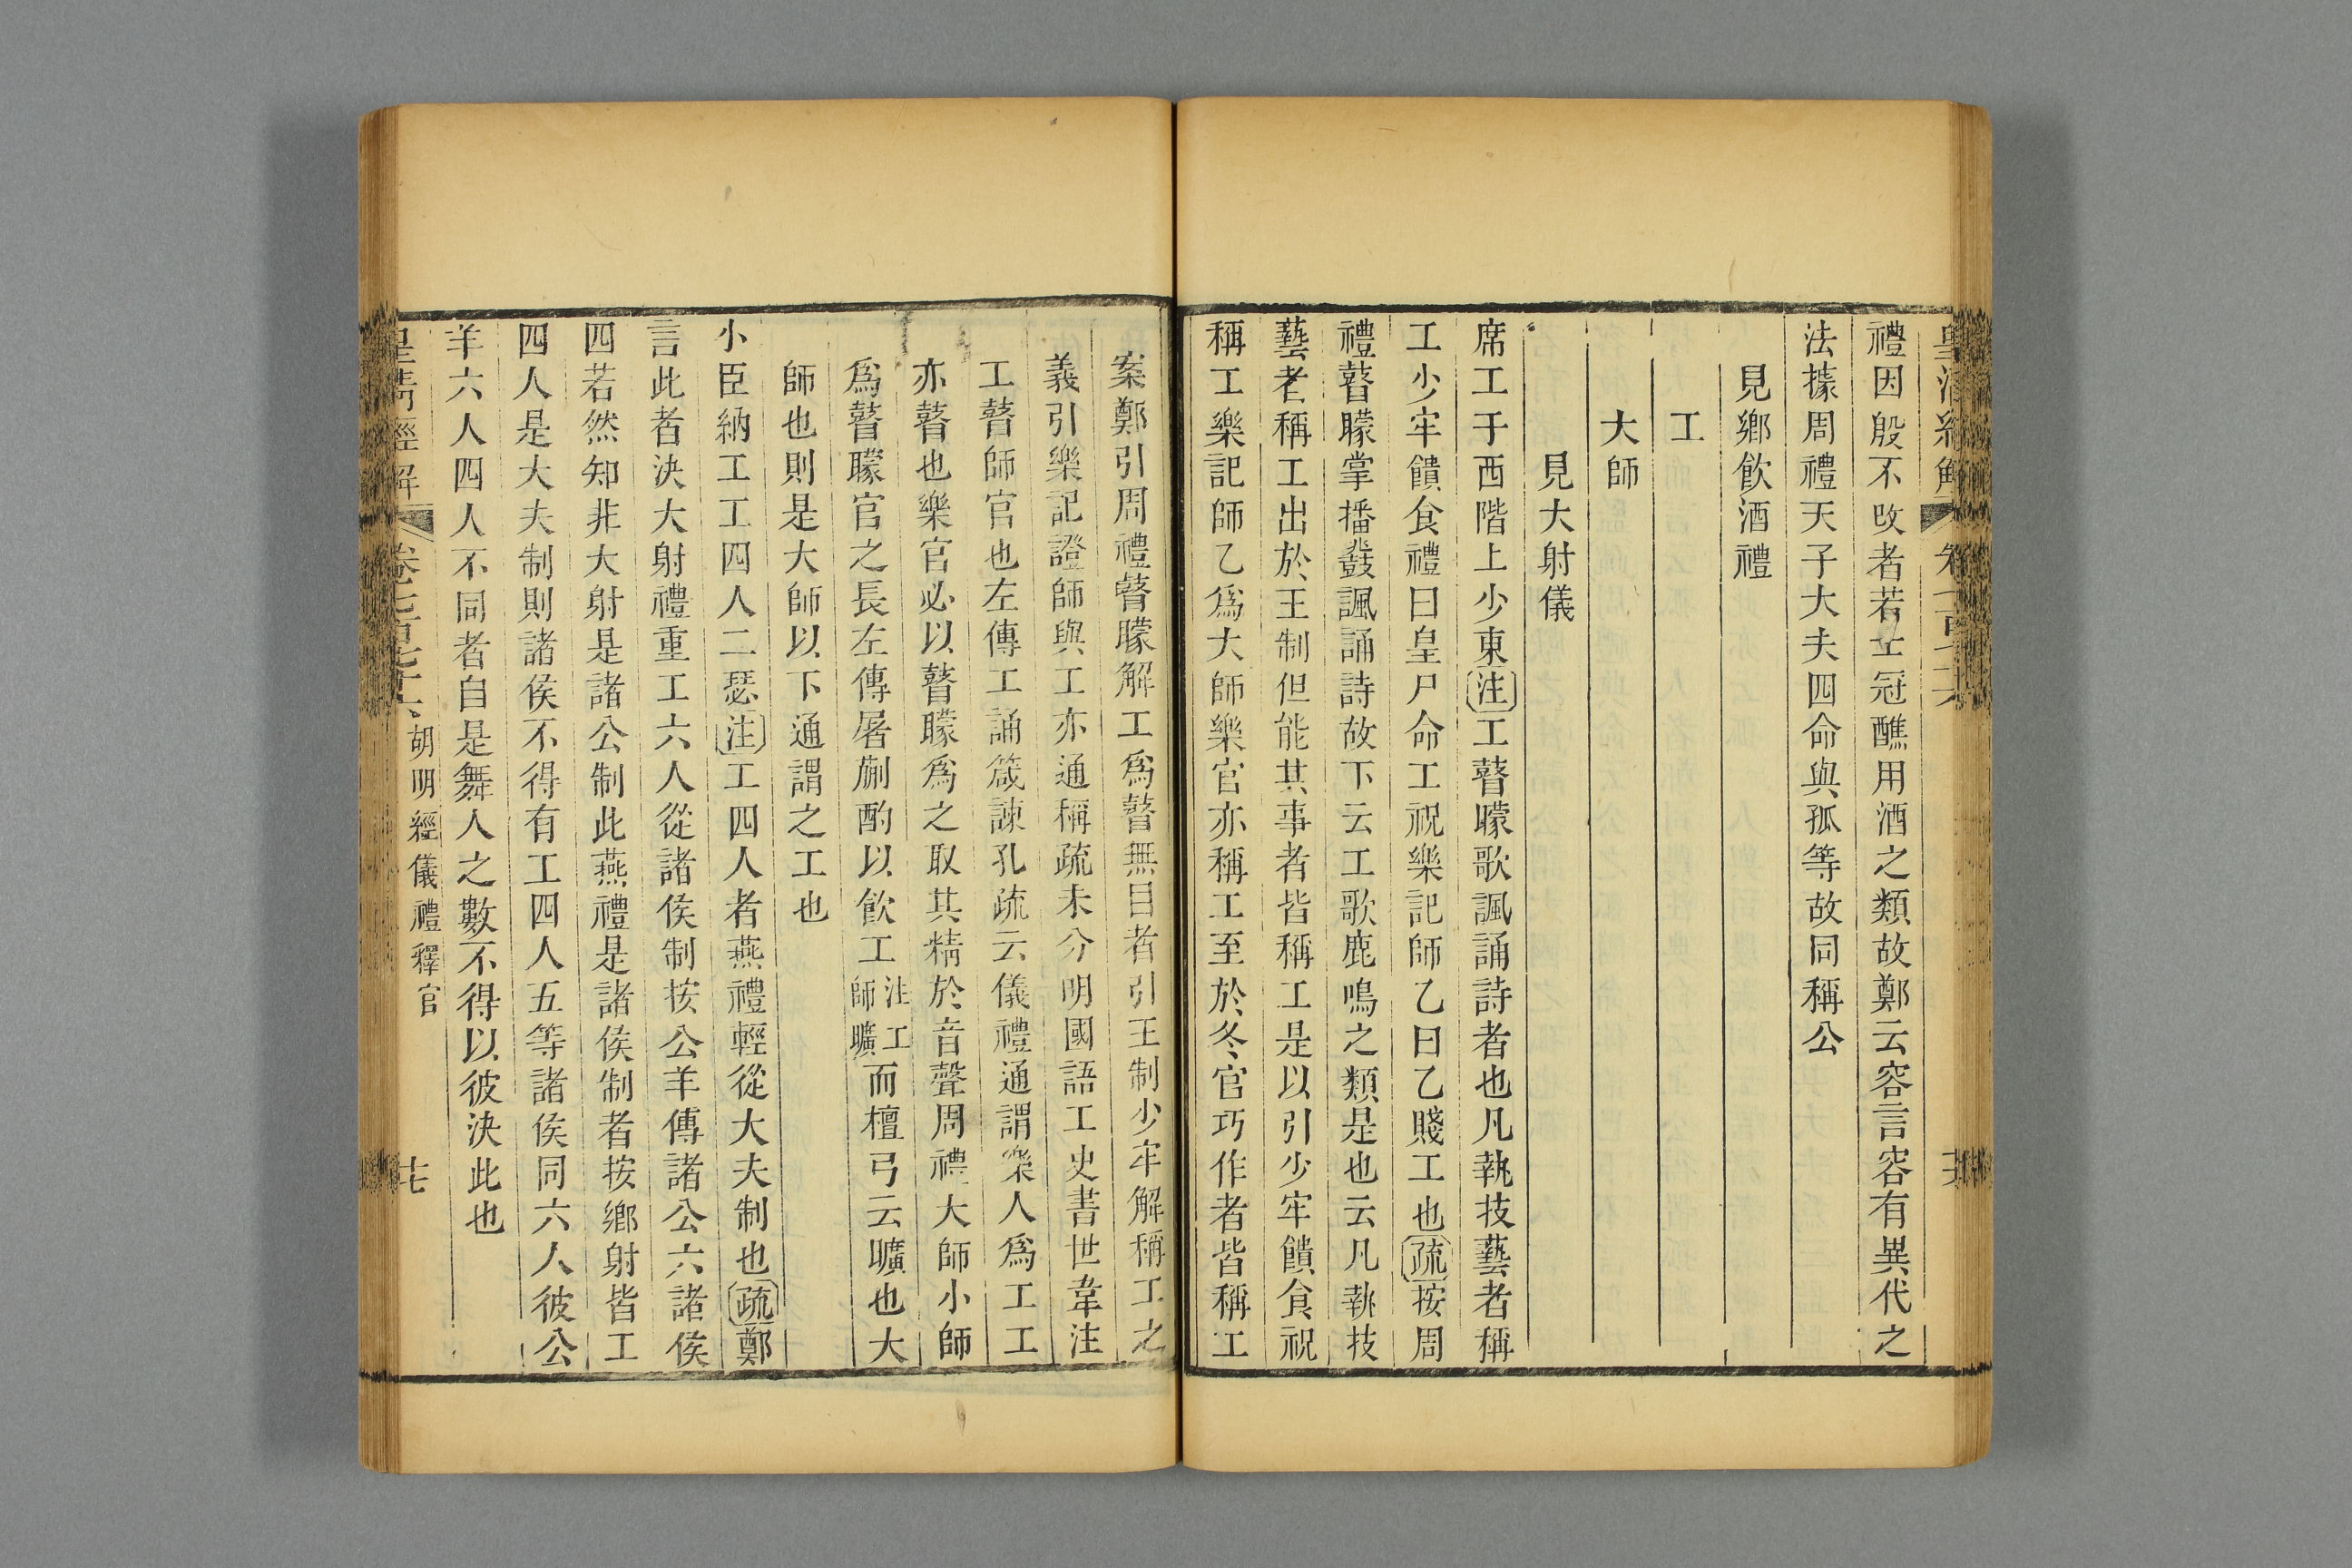 禮因殷不改者若士冠醮用酒之類故鄭云容言容有異代之
法據周禮天子大夫四命與孤等故同稱公
見鄉飲酒禮
工
大師
見大射儀
席工于西階上少東注工瞽矇歌諷誦詩者也凡執技藝者稱
工少牢饋食禮曰皇尸命工祝樂記師乙曰乙賤工也疏按周
禮瞽矇掌播鼗諷誦詩故下云工歌鹿鳴之類是也云凡執技
藝者稱工出於王制但能其事者皆稱工是以引少牢饋食祝
稱工樂記師乙爲大師樂官亦稱工至於冬官巧作者皆稱工
案鄭引周禮瞽矇解工爲瞽無目者引王制少牢解稱工之
義引樂記證師與工亦通稱疏未分明國語工史書世韋注
工瞽師官也左傳工誦箴諫孔疏云儀禮通謂樂人爲工工
亦瞽也樂官必以瞽矇爲之取其精於音聲周禮大師小師
爲瞽矇官之長左傳屠蒯酌以飲工注工師曠而檀弓云曠也大
師也則是大師以下通謂之工也
小臣納工工四人二瑟注工四人者燕禮輕從大夫制也疏鄭
言此者決大射禮重工六人從諸侯制按公羊傳諸公六諸侯
四若然知非大射是諸公制此燕禮是諸侯制者按鄉射皆工
四人是大夫制則諸侯不得有工四人五等諸侯同六人彼公
羊六人四人不同者自是舞人之數不得以彼決此也
皇清經解 卷七百七十六 胡明經儀禮釋官 七